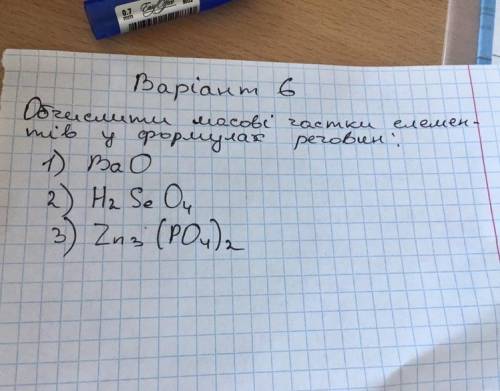 0.7
Варіант 6
Обчислити масові частки елемен-
тів у формулах речовин:
1) BaO
2) H2SeO4
3) Zn3(PO4)2